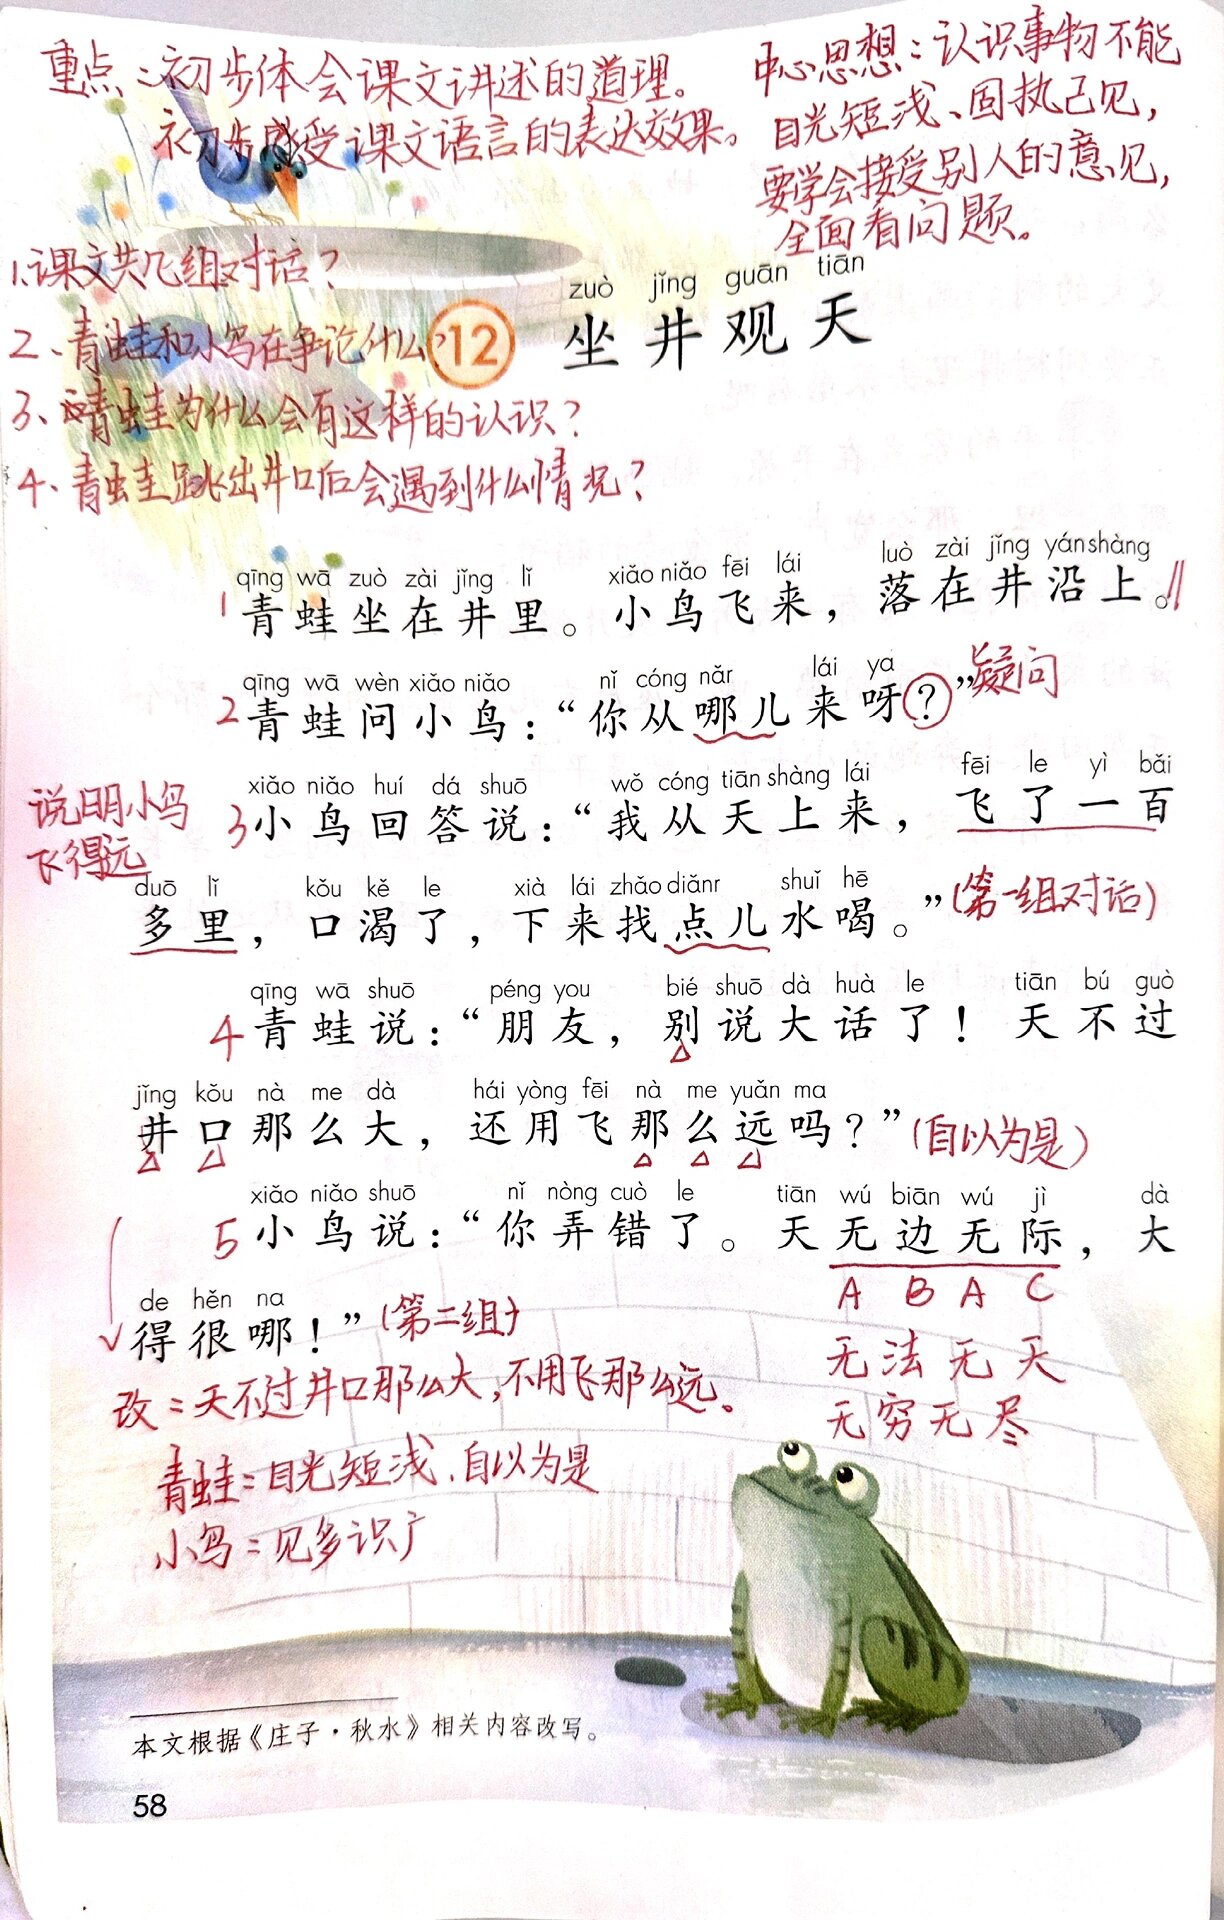 重点：初步体会课文讲述的道理。
初步感受课文语言的表达效果。
中心思想：认识事物不能
目光短浅、固执己见，
要学会接受别人的意见，
全面看问题。
1.课文共几组对话？
2、青蛙和小鸟在争论什么？
3、青蛙为什么会有这样的认识？
4、青蛙跳出井口后会遇到什么情况？
zuò jǐng guān tiān
12 坐井观天
qīng wā zuò zài jǐng lǐ xiǎo niǎo fēi lái luò zài jǐng yán shàng
1 青蛙坐在井里。小鸟飞来，落在井沿上。
qīng wā wèn xiǎo niǎo nǐ cóng nǎr lái ya
2 青蛙问小鸟：“你从哪儿来呀？” 疑问
xiǎo niǎo huí dá shuō wǒ cóng tiān shàng lái fēi le yì bǎi
3 小鸟回答说：“我从天上来，飞了一百
说明小鸟
飞得远
duō lǐ kǒu kě le xià lái zhǎo diǎnr shuǐ hē
多里，口渴了，下来找点儿水喝。”(第一组对话)
qīng wā shuō péng you bié shuō dà huà le tiān bú guò
4 青蛙说：“朋友，别说大话了！天不过
jǐng kǒu nà me dà hái yòng fēi nà me yuǎn ma
井口那么大，还用飞那么远吗？”(自以为是)
xiǎo niǎo shuō nǐ nòng cuò le tiān wú biān wú jì dà
5 小鸟说：“你弄错了。天无边无际，大
A B A C
de hěn na
得很哪！”(第二组)
无法无天
无穷无尽
改：天不过井口那么大，不用飞那么远。
青蛙：目光短浅、自以为是
小鸟：见多识广
本文根据《庄子·秋水》相关内容改写。
58